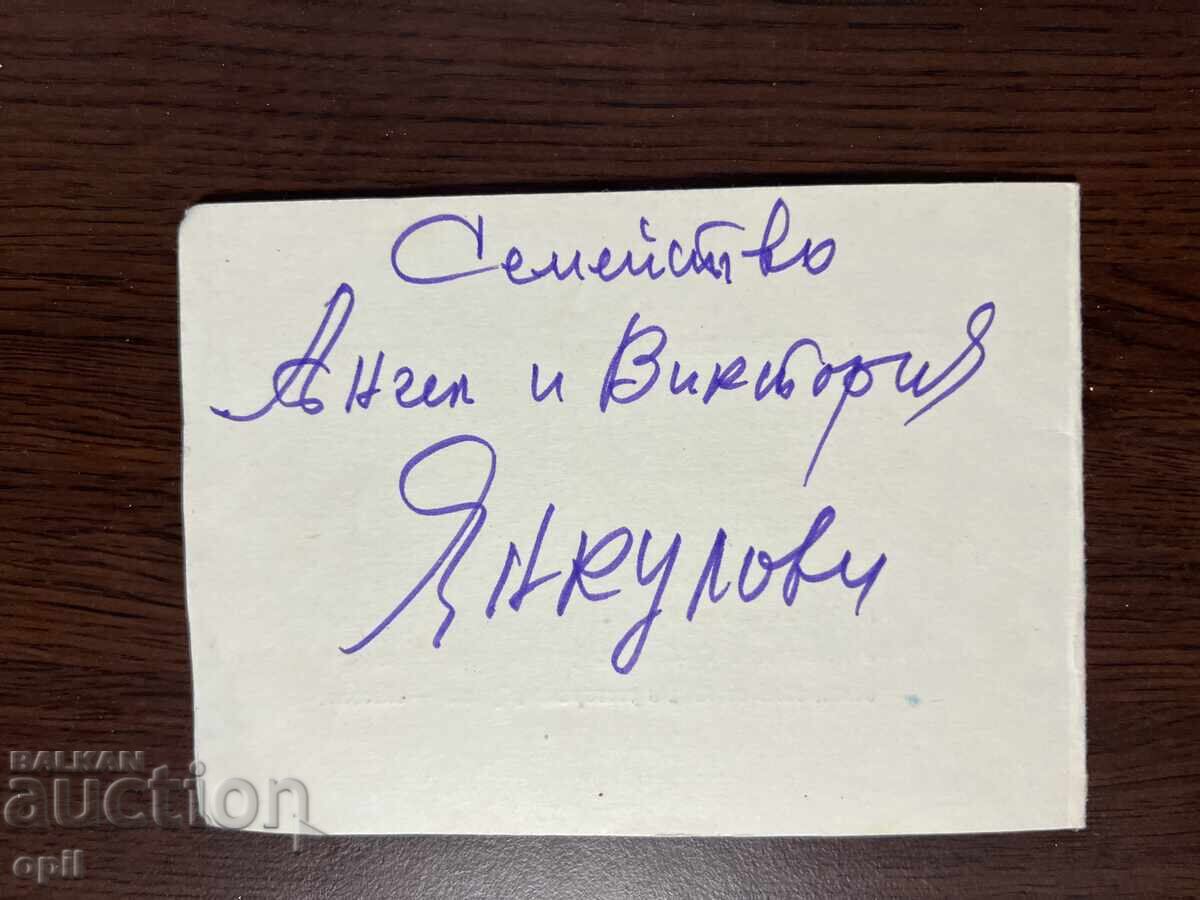 Семейство
Ангел и Виктория
Янкулови
BALKAN
auction
opil